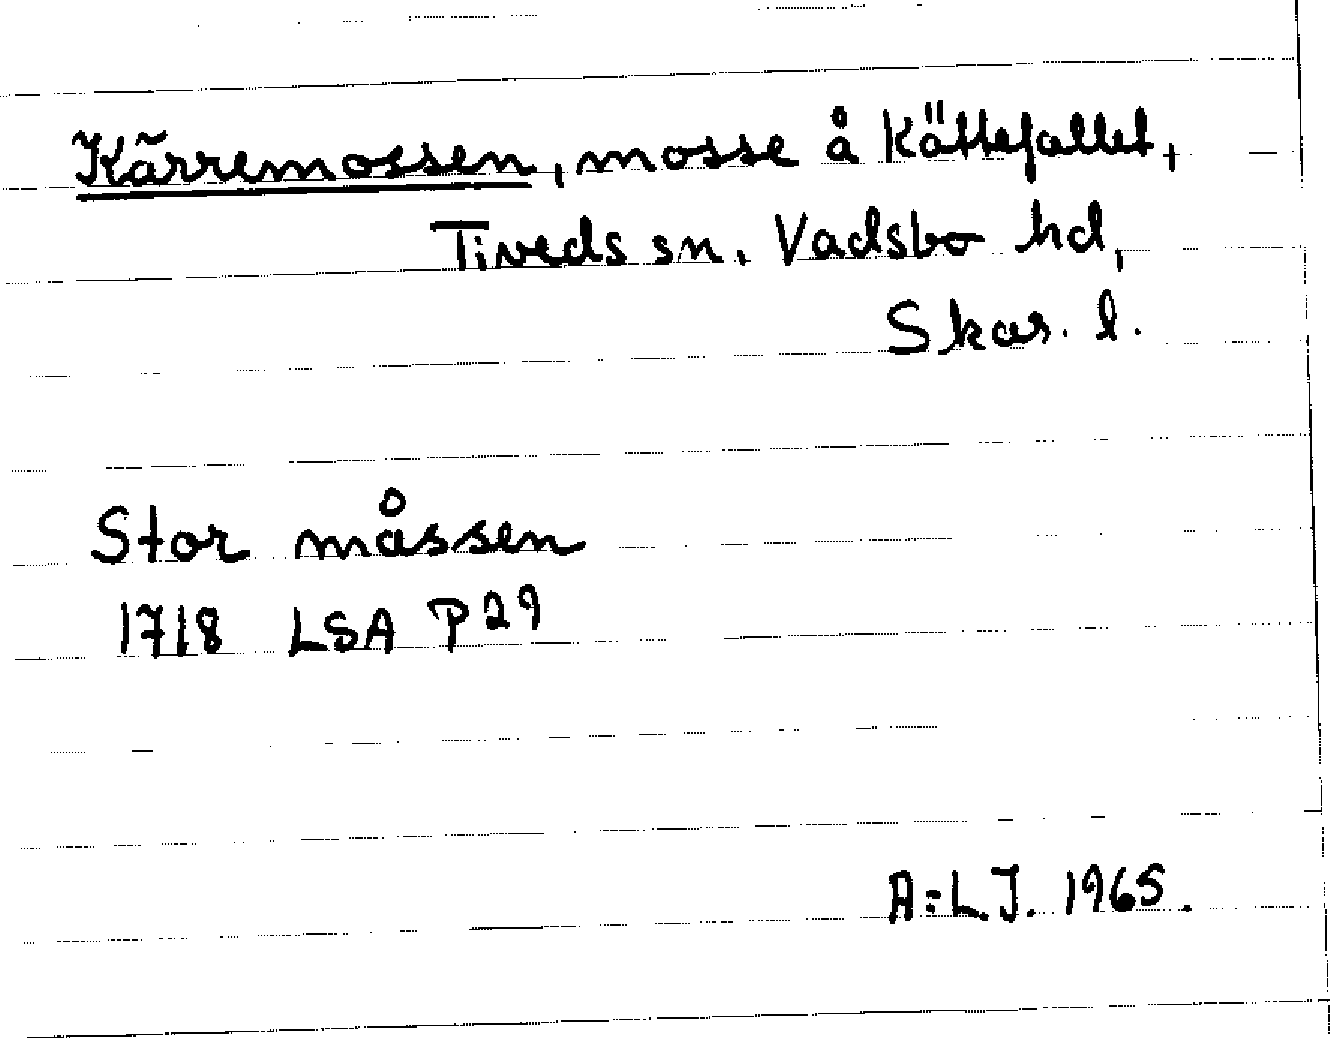 Kärremossen, mosse å Kättefallet,
Tiveds sn, Vadsbo hd,
Skar. l.
Stor måssen
1718 LSA P29
A:L.J. 1965.